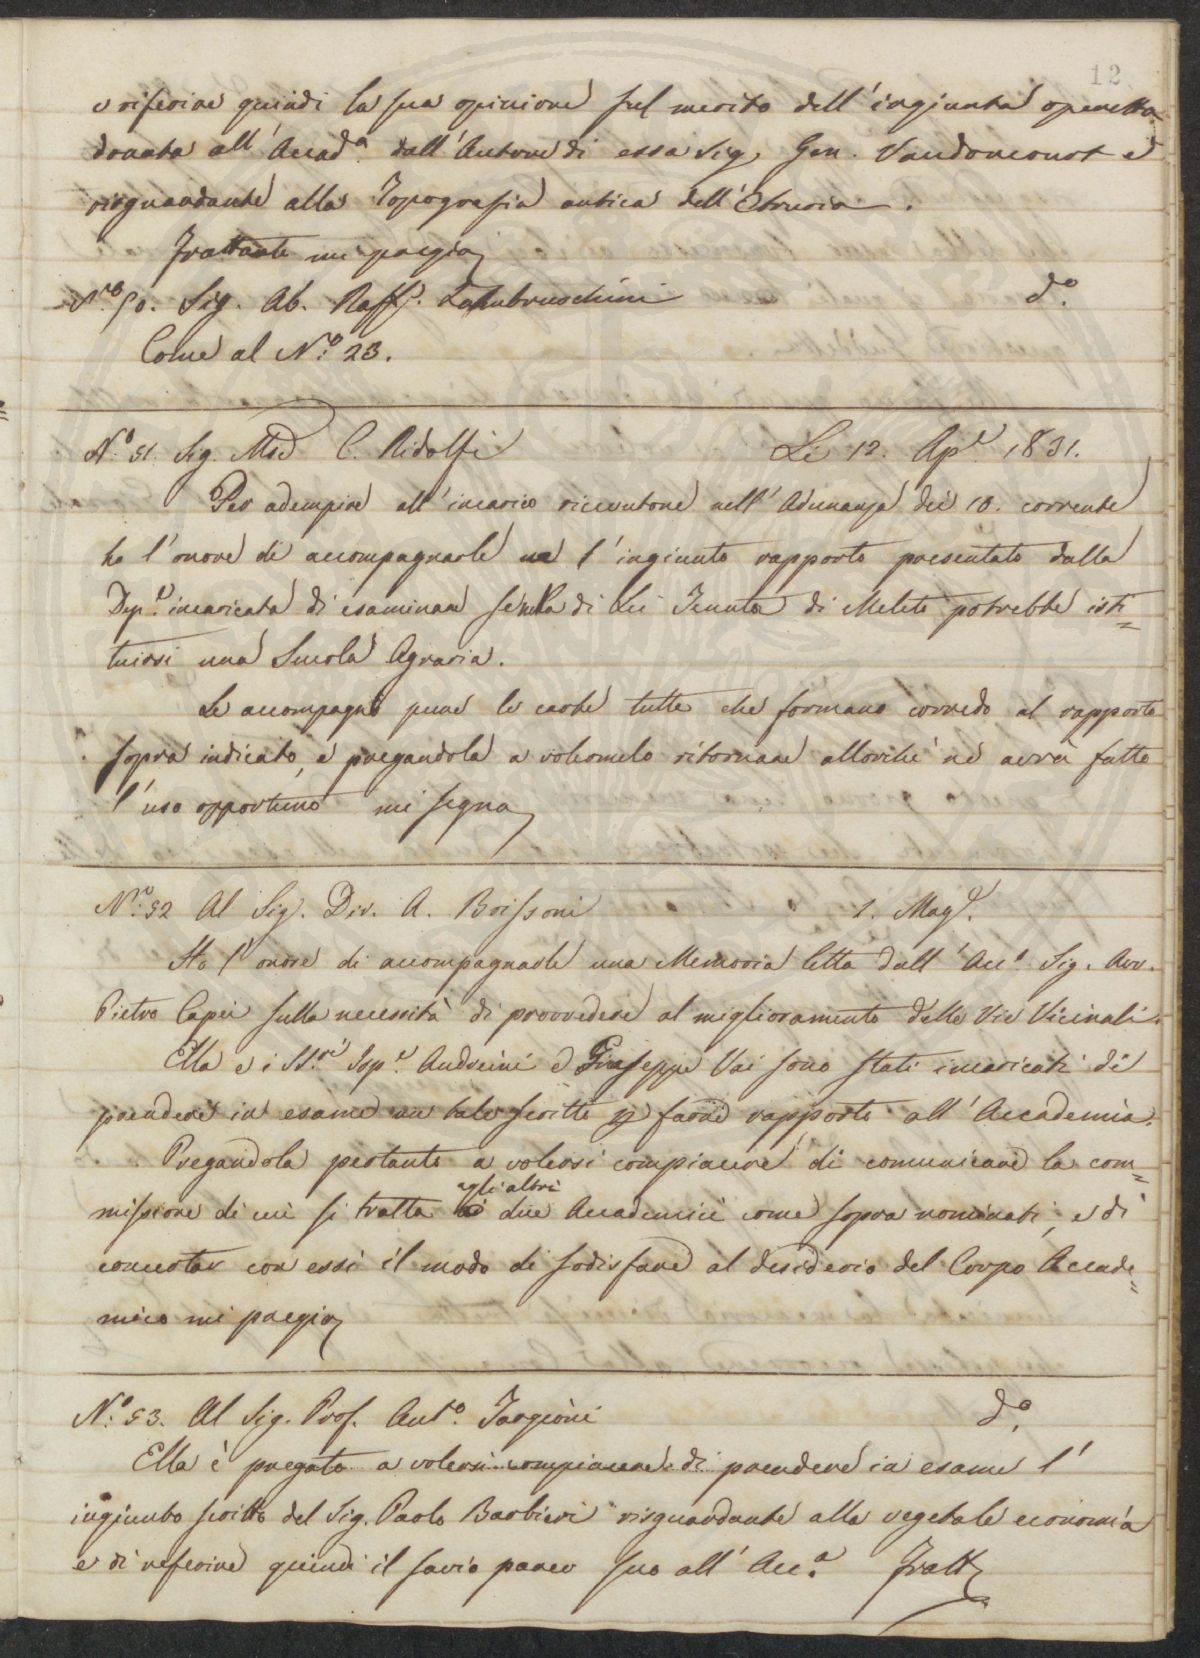 12
e riferire quindi la sua opinione sul merito dell'ingiunta operetta
donata all'Accad.a dall'Autore di essa Sig. Gen. Vaudoncourt e
risguardante alla Topografia antica dell'Etruria.
Frattanto mi pregio
N.ro 50. Sig. Ab. Raff. Lambruschini d.o
Come al N.o 23.
N.o 51. Sig. M. C. Ridolfi Li 12. Ap.e 1831.
Per adempire all'incarico ricevutone nell'Adunanza dei 10. corrente
ho l'onore di accompagnarle l'ingiunto rapporto presentato dalla
Dep.e incaricata di esaminare se nella di Lei Tenuta di Meleto potrebbe isti=
tuirsi una Scuola Agraria.
Le accompagno pure le carte tutte che formano corredo al rapporto
sopra indicato, e pregandola a volermelo ritornare allorchè ne avrà fatto
l'uso opportuno mi segno
N.o 52 Al Sig. Div. A. Boissoni 1. Mag.
Ho l'onore di accompagnarle una Memoria letta dall'Acc.o Sig. Avv.
Pietro Capei sulla necessità di provvedere al miglioramento delle Vie Vicinali.
Ella e i SS.ri Isp.e Andreini e Giuseppe Vai sono stati incaricati di
prendere in esame un tale scritto p farne rapporto all'Accademia.
Pregandola pertanto a volersi compiacere di comunicare la com=
missione di cui si tratta agli altri due Accademici come sopra nominati, e di
concertar con essi il modo di sodisfare al desiderio del Corpo Accade=
mico mi pregio
N.o 53. Al Sig. Prof. Ant.o Targioni d.o
Ella è pregato a volersi compiacere di prendere in esame l'
ingiunto scritto del Sig. Paolo Barbieri risguardante alla vegetale economia
e di referire quindi il savio parer suo all'Acc.a Fratt